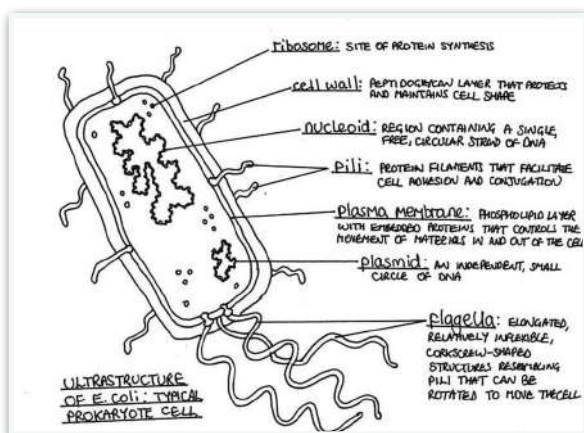 ribosome: SITE OF PROTEIN SYNTHESIS
cell wall: PEPTIDOGLYCAN LAYER THAT PROTECTS
AND MAINTAINS CELL SHAPE
nucleoid: REGION CONTAINING A SINGLE,
FREE, CIRCULAR STRAND OF DNA
pili: PROTEIN FILAMENTS THAT FACILITATE
CELL ADHESION AND CONJUGATION
plasma membrane: PHOSPHOLIPID LAYER
WITH EMBEDDED PROTEINS THAT CONTROLS THE
MOVEMENT OF MATERIALS IN AND OUT OF THE CELL
plasmid: AN INDEPENDENT, SMALL
CIRCLE OF DNA
flagella: ELONGATED,
RELATIVELY INFLEXIBLE,
CORKSCREW-SHAPED
STRUCTURES RESEMBLING
PILI THAT CAN BE
ROTATED TO MOVE THE CELL
ULTRASTRUCTURE
OF E. coli: TYPICAL
PROKARYOTE CELL